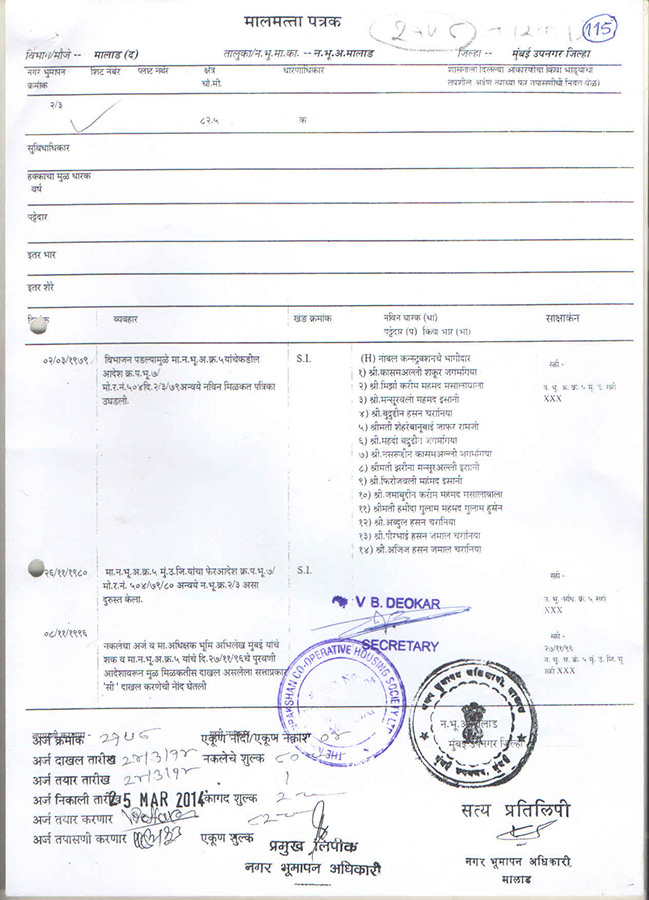 मालमत्ता पत्रक
115
विभाग/मौजे -- मालाड (द) तालुका/न.भु.मा.का. -- न.भू.अ.मालाड जिल्हा -- मुंबई उपनगर जिल्हा
नगर भुमापन क्रमांक शिट नंबर प्लाट नंबर क्षेत्र चौ.मी. धारणाधिकार शासनाला दिलेल्या आकारणीचा किंवा भाड्याचा
तपशील आणि त्याच्या फेर तपासणीची नियत वेळ)
२/३
८२.५ क
सुविधाधिकार
हक्काचा मुळ धारक
वर्ष
पट्टेदार
इतर भार
इतर शेरे
व्यवहार खंड क्रमांक नविन धारक (धा) साक्षाकंन
पट्टेदार (प) किंवा भार (भा)
०२/०३/१९७९ विभाजन पडल्यामुळे मा.न.भू.अ.क्र.५यांचेकडील S.I. (H) नोबल कन्स्ट्रक्शनचे भागीदार सही -
आदेश क्र.प.भू.७/ १) श्री.कासमअल्ली शकुर जगमगिया
मो.र.नं.५०४दि.२/३/७९अन्वये नविन मिळकत पत्रिका २) श्री.मिर्झा करीम महमद मसालावाला न. भु. अ. क्र. ५ मुं. उ. सही
उघडली. ३) श्री.मन्सूरवली महमद इसानी XXX
४) श्री.बुदुद्दीन हसन चरानिया
५) श्रीमती शेहरेबानूबाई जाफर रामजी
६) श्री.महदी बदुद्दीन जगमगिया
७) श्री.नसरुद्दीन कासमअल्ली जगमगिया
८) श्रीमती झरीना मन्सूरअल्ली इरानी
९) श्री.फिरोजवली महंमद इसानी
१०) श्री.जमाबुद्दीन करीम महमद मसालावाला
११) श्रीमती हमीदा गुलाम महमद गुलाम हुसेन
१२) श्री.अब्दुल हसन चरानिया
१३) श्री.पीरभाई हसन जमाल चरानिया
१४) श्री.अजिज हसन जमाल चरानिया
२६/११/१९८० मा.न.भू.अ.क्र.५ मुं.उ.जि.यांचा फेरआदेश क्र.प.भू.७/ S.I. सही -
मो.र.नं. ५०४/७९/८० अन्वये न.भू.क्र.२/३ असा
दुरुस्त केला. XXX
V B. DEOKAR
०८/११/१९९६ सही -
SECRETARY २७/११/९६
नकलेचा अर्ज व मा.अधिक्षक भूमि अभिलेख मुंबई यांचे न. भु. अ. क्र. ५ मुं. उ. जि. मु
शक व मा.न.भू.अ.क्र.५ यांचे दि.२७/११/९६चे पुरवणी XXX
आदेशावरून मुळ मिळकतीस दाखल असलेला सत्ताप्रकार
'सी' दाखल करणेची नोंद घेतली
CO-OPERATIVE HOUSING SOCIETY LTD
न.भू.अ.मालाड
मुंबई उपनगर जिल्हा
अर्ज क्रमांक २९५८ एकूण नोंदी/एकूण नकाश
अर्ज दाखल तारीख नकलेचे शुल्क
अर्ज तयार तारीख
अर्ज निकाली तारीख 25 MAR 2014 कागद शुल्क
अर्ज तयार करणार
अर्ज तपासणी करणार एकूण शुल्क
प्रमुख लिपीक
नगर भूमापन अधिकारी
सत्य प्रतिलिपी
नगर भूमापन अधिकारी
मालाड